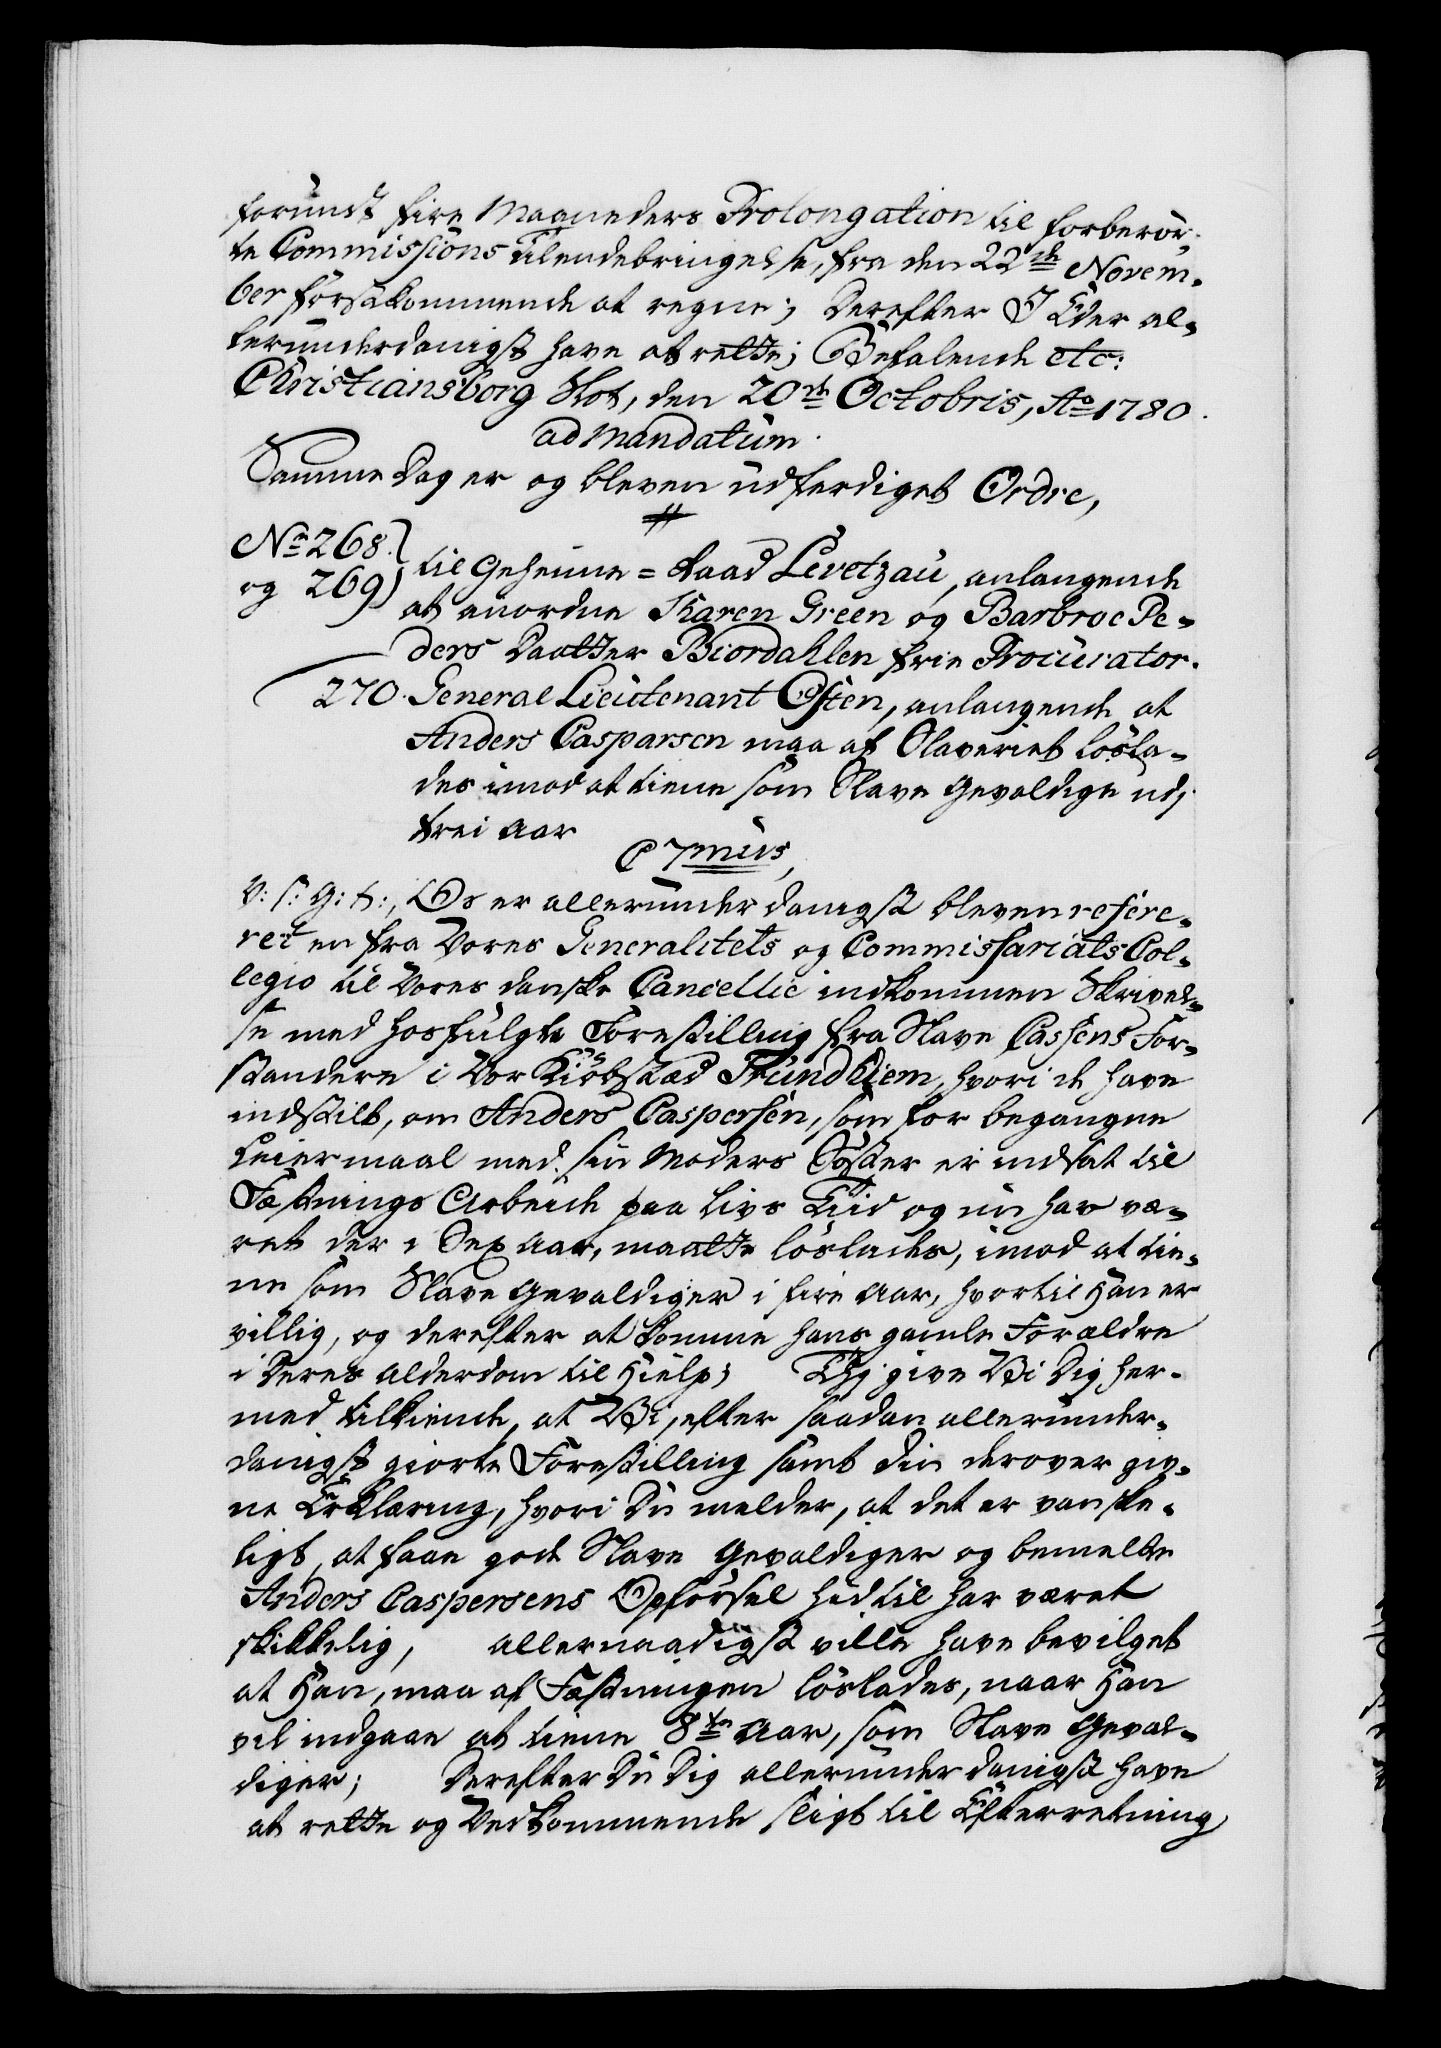 forundt fire Maaneders Prolongation til forberør-
te Commissions Tilendebringelse, fra den 22de Novem-
ber førstkommende at regne; Derefter I Eder al-
lerunderdanigst have at rette; Befalende etc:
Christiansborg Slot, den 20de Octobris, Ao 1780.
ad Mandatum.
Samme Dag er og bleven udferdiget Ordre,
No 268.
og 269)
til Geheime-Raad Levetzau, anlangende
at anordne Karen Green og Barbroe Pe-
ders Daatter Biordahlen frie Procurator.
270. General Lieutenant Osten, anlangende at
Anders Casparsen maa af Slaveriet løsla-
des imod at tiene som Slave Gevaldige udj
trei Aar
C 7mus,
V: s: G: t:, Os er allerunderdanigst bleven refere-
ret en fra Vores Generalitets og Commissariats Col-
legio til Vores danske Cancellie indkommen Skrivel-
se med hosfulgte Forestilling fra Slave Cassens For-
standere i Vor Kiøbstæd Trundhiem, hvori de have
indstilt, om Anders Caspersen, som for begangne
Leiermaal med sin Moders Søster er indsat til
Fæstnings Arbeide paa Livs Tiid og nu har væ-
ret der i Sex Aar, maatte løslades, imod at tie-
ne som Slave Gevaldiger i fire Aar, hvortil Han er
villig, og derefter at komme hans gamle Forældre
i Deres Alderdom til Hielp; Thj give Vi Dig her-
med tilkiende, at Vi, efter saadan allerunder-
danigst giorte Forestilling samt Din derover giv-
ne Erklæring, hvori Du melder, at det er vanske-
ligt, at faae gode Slave Gevaldiger og bemelte
Anders Caspersens Opførsel hidtil har været
skikkelig, allernaadigst ville have bevilget
at Han, maa af Fæstningen løslades, naar Han
vil indgaae at tiene 8te Aar, som Slave Geval-
diger; Derefter Du Dig allerunderdanigst have
at rette og Vedkommende sligt til Efterretning